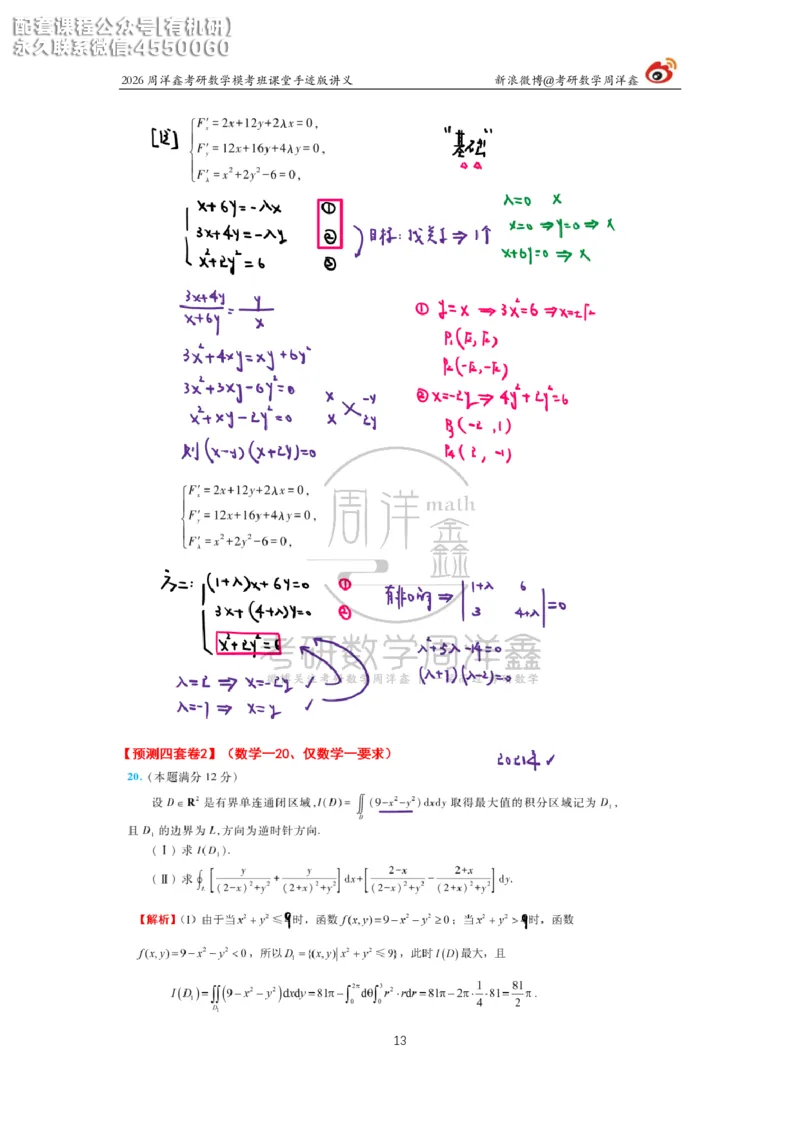 配套课程公众号[有机研)
永久联系微信:4550060
2026周洋鑫考研数学模考班课堂手迹版讲义 新浪微博@考研数学周洋鑫
F′x=2x+12y+2λx=0,
F′y=12x+16y+4λy=0,
F′λ=x²+2y²-6=0,
"基础"
x+6y=-λx ①
3x+4y=-λy ②
x²+2y²=6 ③
目标:找关系⇒1个
λ=0 ×
x=0⇒y=0⇒×
x+6y=0⇒×
(3x+4y)/(x+6y)=y/x
3x²+4xy=xy+6y²
3x²+3xy-6y²=0
x²+xy-2y²=0
x -y
x 2y
则(x-y)(x+2y)=0
① y=x⇒3x²=6⇒x=±√2
P₁(√2,√2)
P₂(-√2,-√2)
②x=-2y⇒4y²+2y²=6
P₃(-2,1)
P₄(2,-1)
F′x=2x+12y+2λx=0,
F′y=12x+16y+4λy=0,
F′λ=x²+2y²-6=0,
周洋鑫 math
考研数学周洋鑫
方二:
(1+λ)x+6y=0 ①
3x+(4+λ)y=0 ②
x²+2y²=6
有非0解⇒ |1+λ 6; 3 4+λ|=0
λ²+5λ-14=0
(λ+7)(λ-2)=0
λ=2⇒x=-2y ✓
λ=-7⇒x=y ✓
【预测四套卷2】(数学一20、仅数学一要求)
2021年✓
20.(本题满分12分)
设D∈R²是有界单连通闭区域,I(D)=∬_D(9-x²-y²)dxdy取得最大值的积分区域记为D₁,
且D₁的边界为L,方向为逆时针方向.
(Ⅰ)求I(D₁).
(Ⅱ)求∮_L[y/((2-x)²+y²)+y/((2+x)²+y²)]dx+[(2-x)/((2-x)²+y²)-(2+x)/((2+x)²+y²)]dy.
【解析】(I)由于当x²+y²≤9时,函数f(x,y)=9-x²-y²≥0;当x²+y²>9时,函数
f(x,y)=9-x²-y²<0,所以D₁={(x,y)|x²+y²≤9},此时I(D)最大,且
I(D₁)=∬_{D₁}(9-x²-y²)dxdy=81π-∫₀^{2π}dθ∫₀³r²·rdr=81π-2π·1/4·81=81/2π.
13